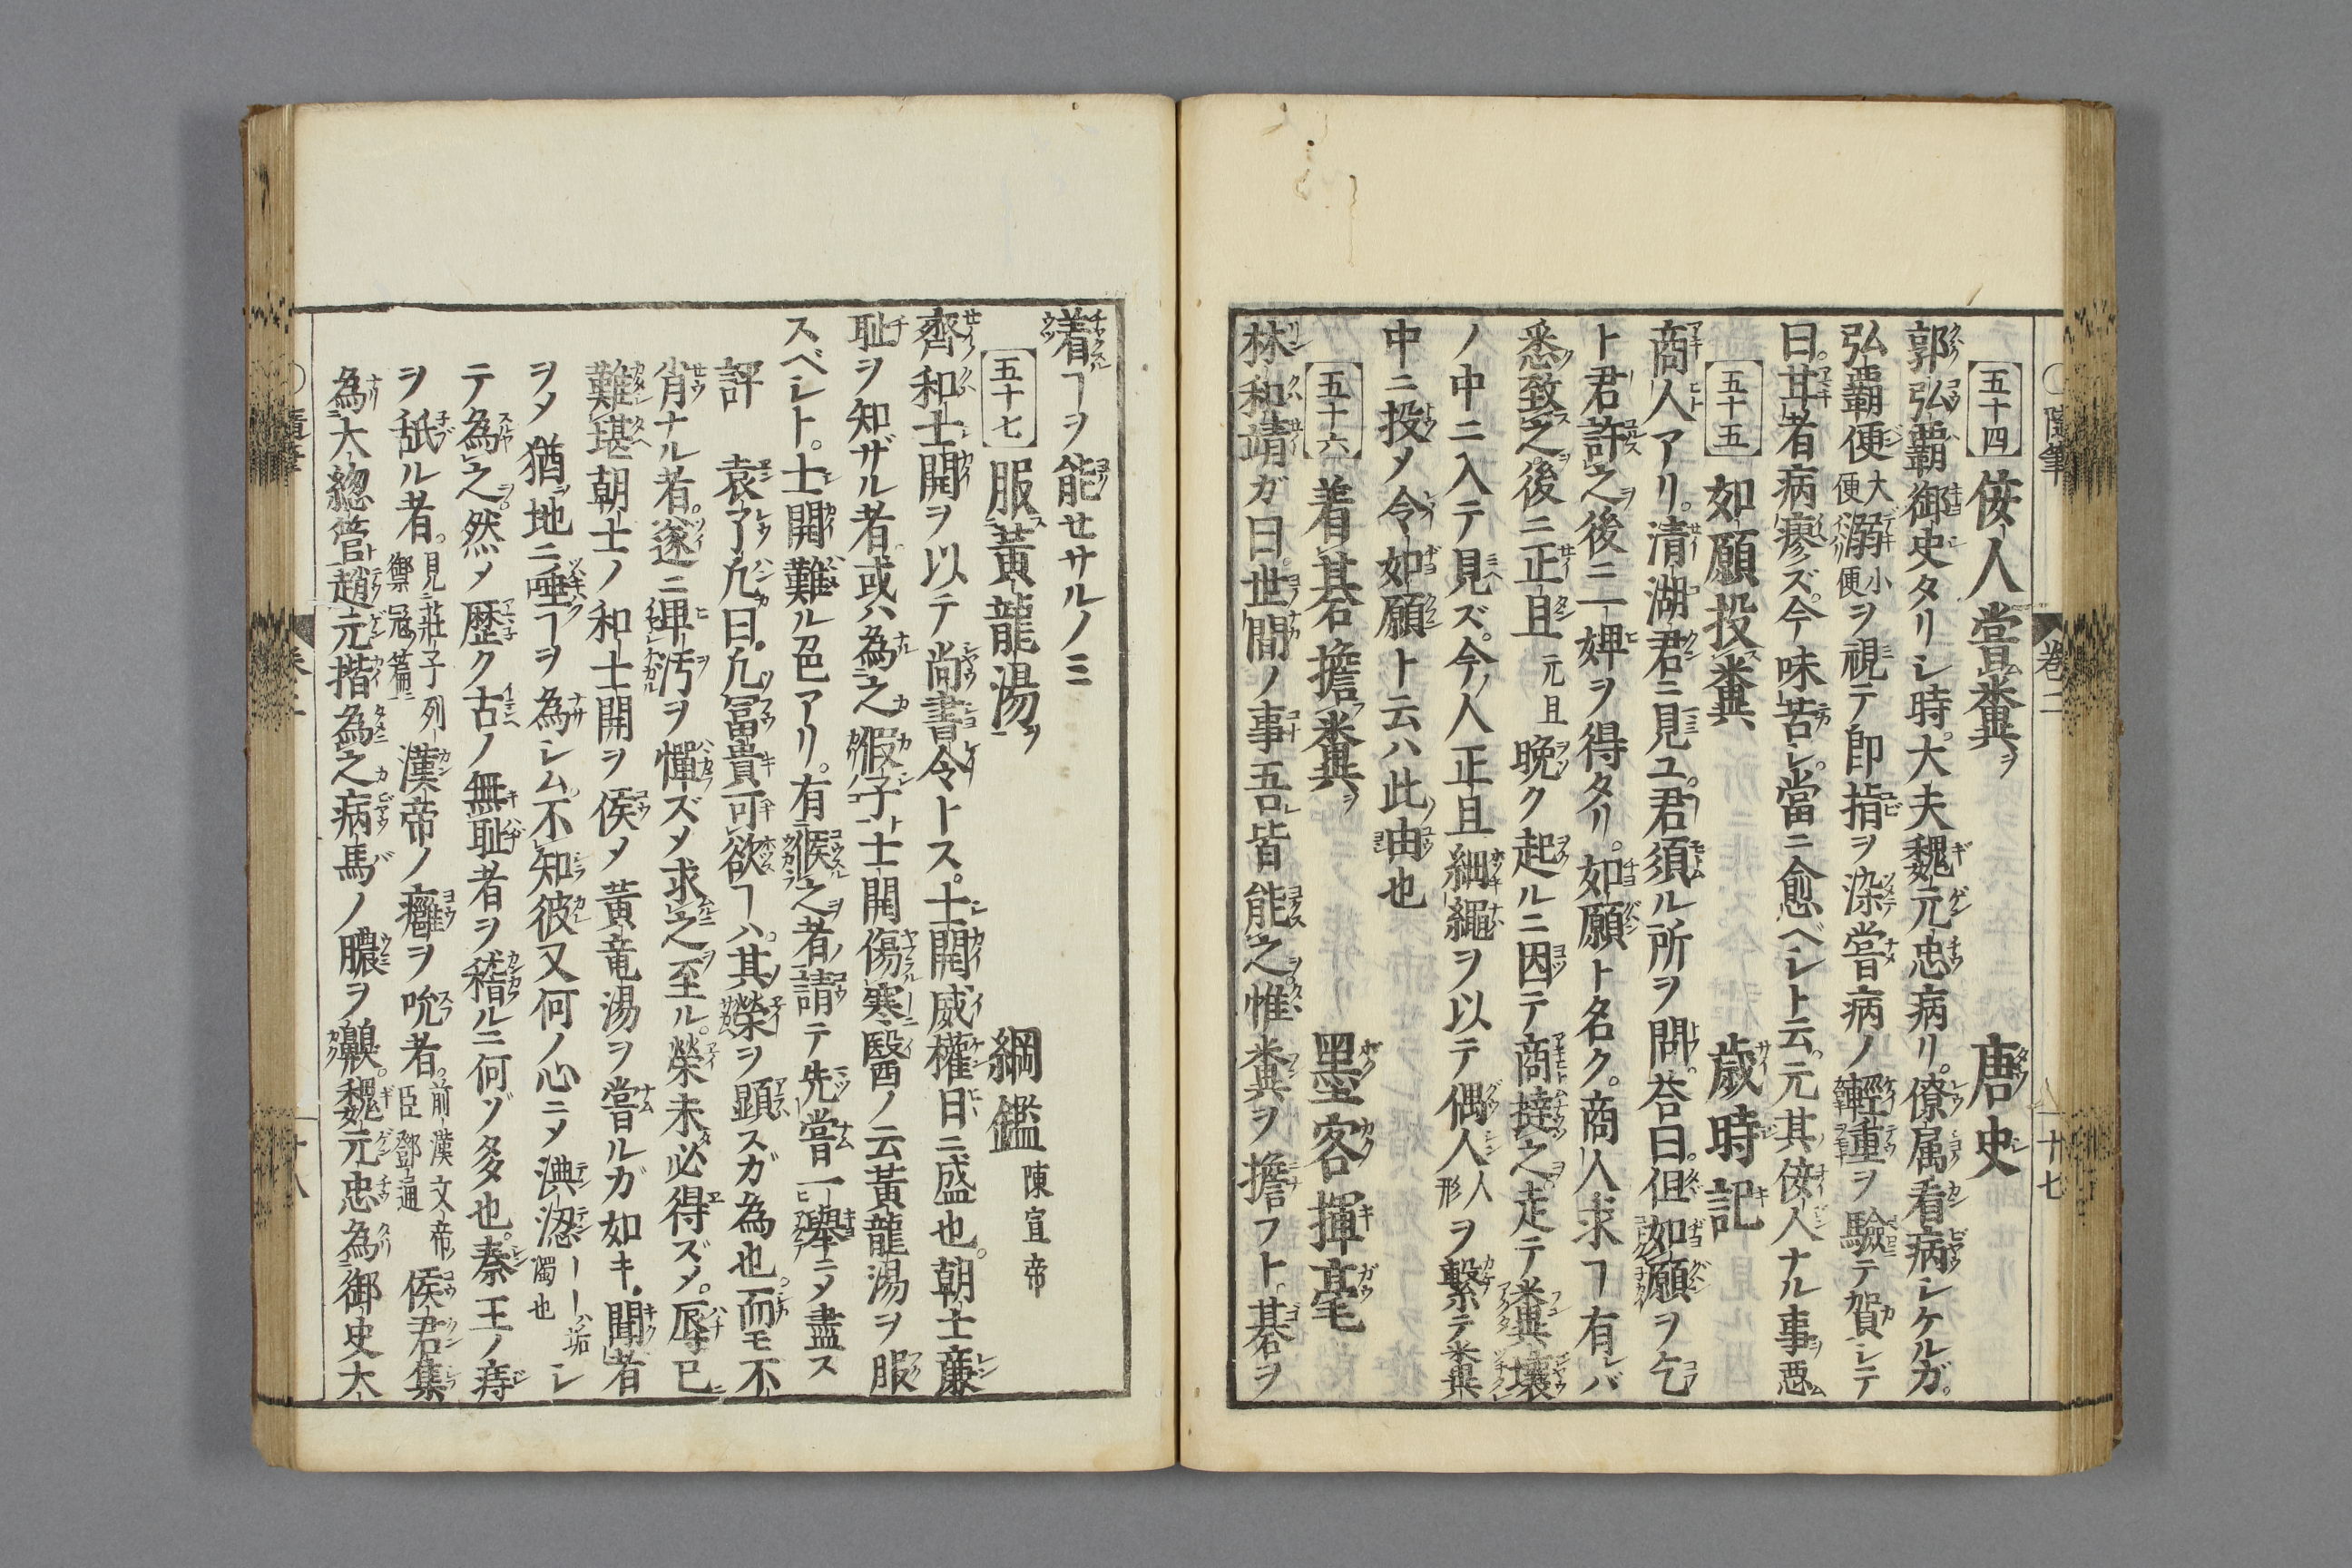 ○隨筆 卷二 十七
五十四 佞人嘗糞ヲ 唐史
郭弘覇御史タリシ時大夫魏元忠病リ。僚属看病シケルガ。
弘覇便大便溺小便ヲ視テ即指ヲ染嘗病ノ輕重ヲ驗テ賀シテ
曰。甘者病瘳ズ。今味苦シ。當ニ愈ベシト云。元其佞人ナル事悪
五十五 如願投糞 歳時記
商人アリ。清湖君ニ見ユ。君須ル所ヲ問。荅曰。但如願ヲ乞
ト君許之後ニ一婢ヲ得タリ。如願ト名ク。商人求ヿ有レバ
悉致之後ニ正且元且晩ク起ルニ因テ商撻之走テ糞壤
ノ中ニ入テ見ズ。今人正且細繩ヲ以テ偶人人形ヲ繫テ糞
中ニ投メ令如願ト云ハ此由也
五十六 着棊擔糞ヲ 墨客揮毫
林和靖ガ曰世間ノ事吾皆能之惟糞ヲ擔フト碁ヲ
着ヿヲ能セサルノミ
五十七 服黃龍湯ヲ 綱鑑陳宣帝
齊和士開ヲ以テ尚書令トス。士開威權日ニ盛也。朝士廉
耻ヲ知ザル者或ハ為之假子ト士開傷寒醫ノ云黃龍湯ヲ服
スベシト。士開難ル色アリ。有候之者請テ先嘗一舉ニメ盡ス
評 袁了凢曰。凢冨貴可欲ヿハ。其榮ヲ顕スガ為也。而モ不
肖ナル者。遂ニ卑汚ヲ憚ズメ求之至ル。榮未必得ズメ。辱已
難堪朝士ノ和士開ヲ候メ黃竜湯ヲ嘗ルガ如キ。聞者
ヲメ猶地ニ唾ヿヲ為シム不知彼又何ノ心ニメ淟涊ーーハ垢濁也シ
テ為之然メ歴ク古ノ無耻者ヲ稽ルニ何ヅ多也。秦王ノ痔
ヲ舐ル者。見莊子列禦冦篇ニ漢帝ノ癰ヲ吮者。前漢文帝臣鄧通侯君集
為大緫管趙元揩為之病馬ノ膿ヲ齅。魏元忠為御史大
○隨筆 卷二 十八